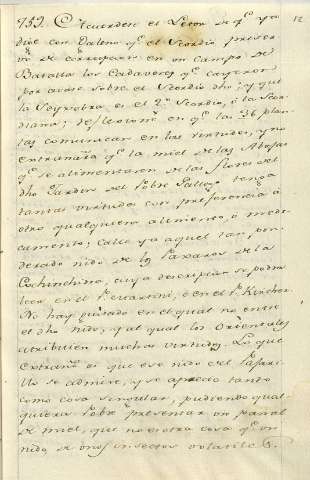 12
752. Acuerdese el Letor de q.e ya
dixe con Galeno q.e el Scordio preser
vó de corrupcion en un campo de
Batalla los Cadaveres q.e cayeron
por acaso sobre el Scordio dho; y que
la Seyxebra es el 2.o Scordio, ó la Scor
diana; reflexione en q.e las 36 plan
tas comunican en las virtudes, y no
extrañará q.e la miel de las Abejas
q.e se alimentaren de las flores del
dho Jardin del Pobre Gallego tenga
tantas virtudes con preferencia á
otro qualquiera alimento, ó medi
camento; calle ya aquel tan pon
derado nido de los Paxaros de la
Cochinchina, cuya descripcion se podrá
leer en el P. Martini, ó en el P. Kircher.
No hay guisado en el qual no entre
el dho nido, y al qual los Orientales
atribuien muchas virtudes. Lo que
extraño es que ese nido del Paxari
llo se admire, y se aprecie tanto
como cosa singular, pudiendo qual
quiera Pobre presentar un panal
de miel, que no es otra cosa q.e un
nido, de unos insectos volatiles.